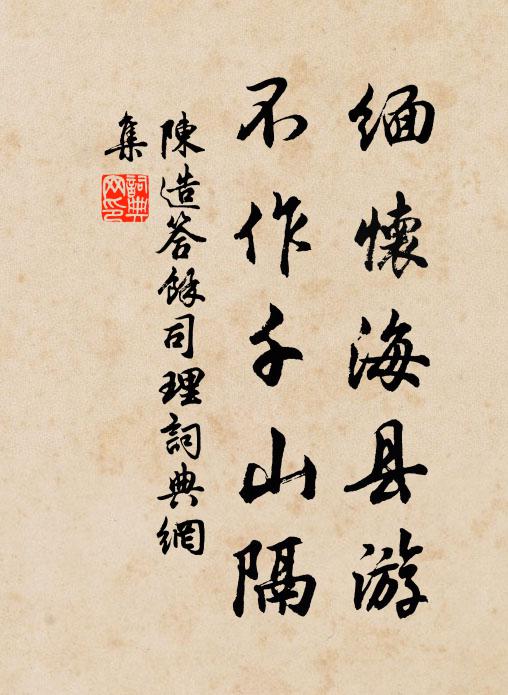 缅懷海县游
不作千山隔
陳造答餘司理詞典網
集
詞典
网印